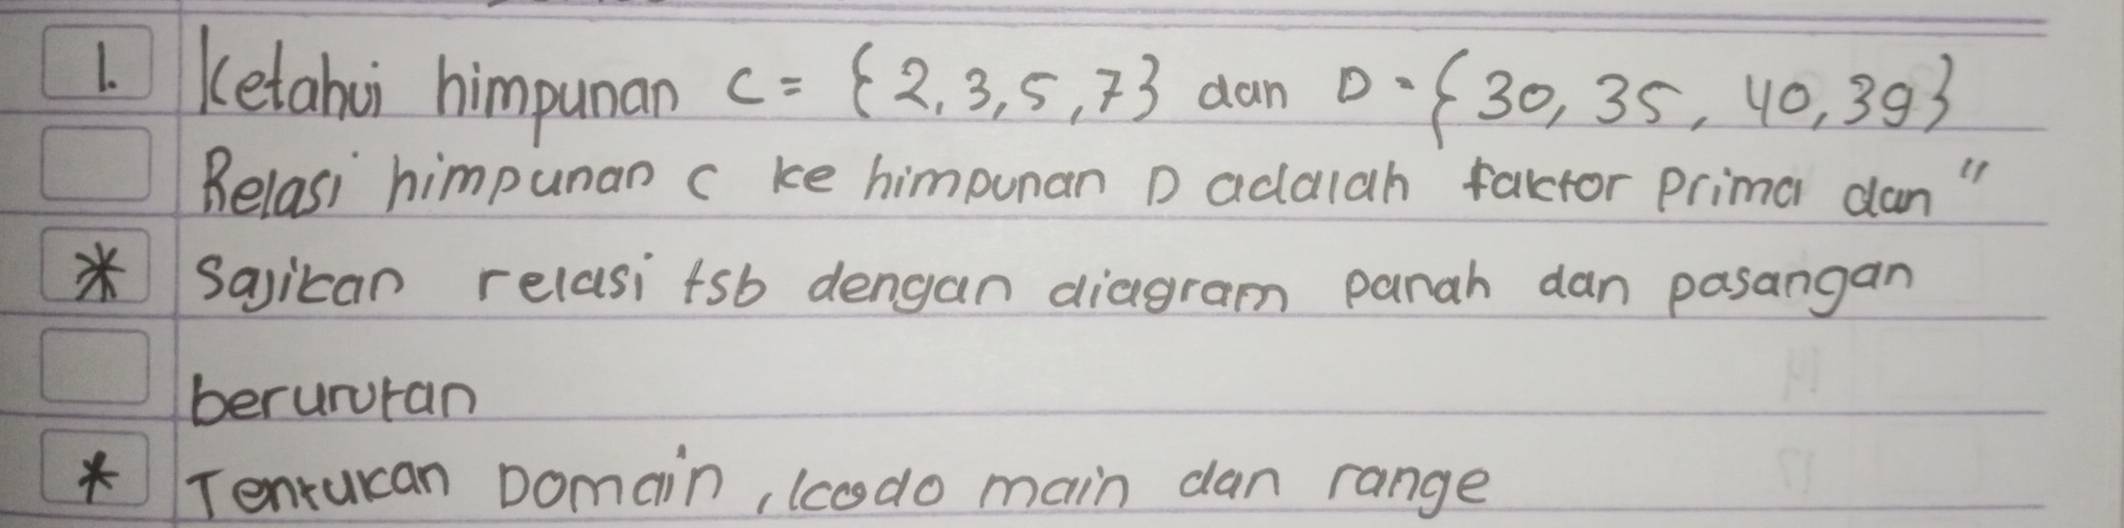 1. Ketahui himpunan C = {2, 3, 5, 7} dan D = {30, 35, 40, 39}
Relasi himpunan C ke himpunan D adalah faktor prima dan "
* Sajikan relasi tsb dengan diagram panah dan pasangan
berurutan
* Tentukan Domain, kodo main dan range